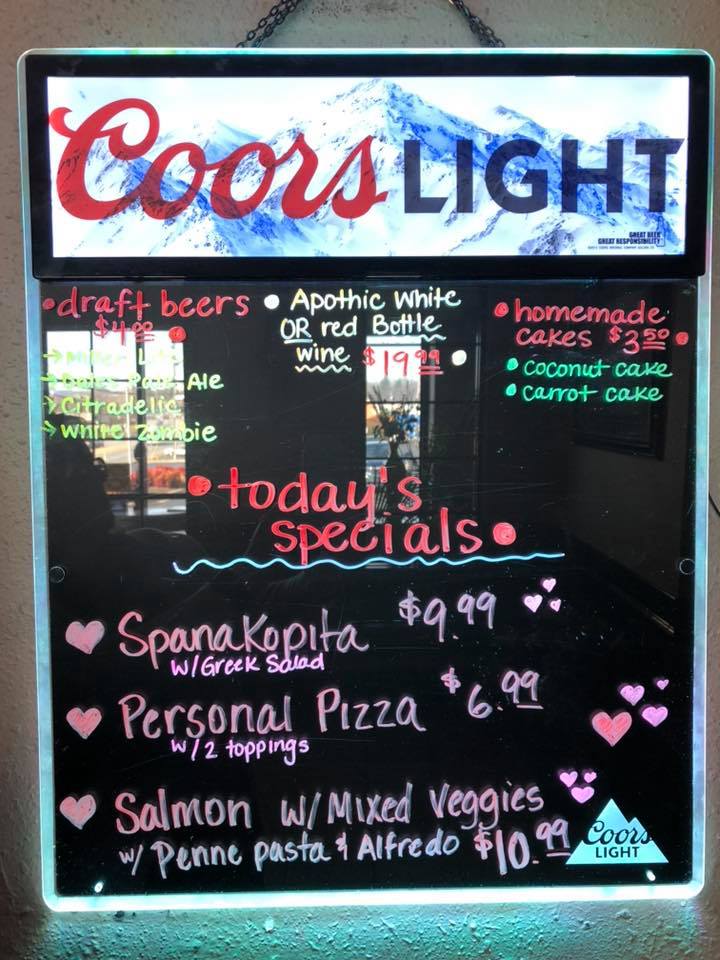 Coors LIGHT
GREAT BEER
GREAT RESPONSIBILITY
draft beers
$4.00
→ Miller Lite
→ Dales Pale Ale
→ Citradelic
→ White Zombie
Apothic White
OR red Bottle
wine $19.99
homemade
cakes $3.50
coconut cake
carrot cake
today's
specials
Spanakopita $9.99
w/Greek Salad
Personal Pizza $6.99
w/2 toppings
Salmon w/ Mixed Veggies
w/ Penne pasta & Alfredo $10.99
Coors
LIGHT